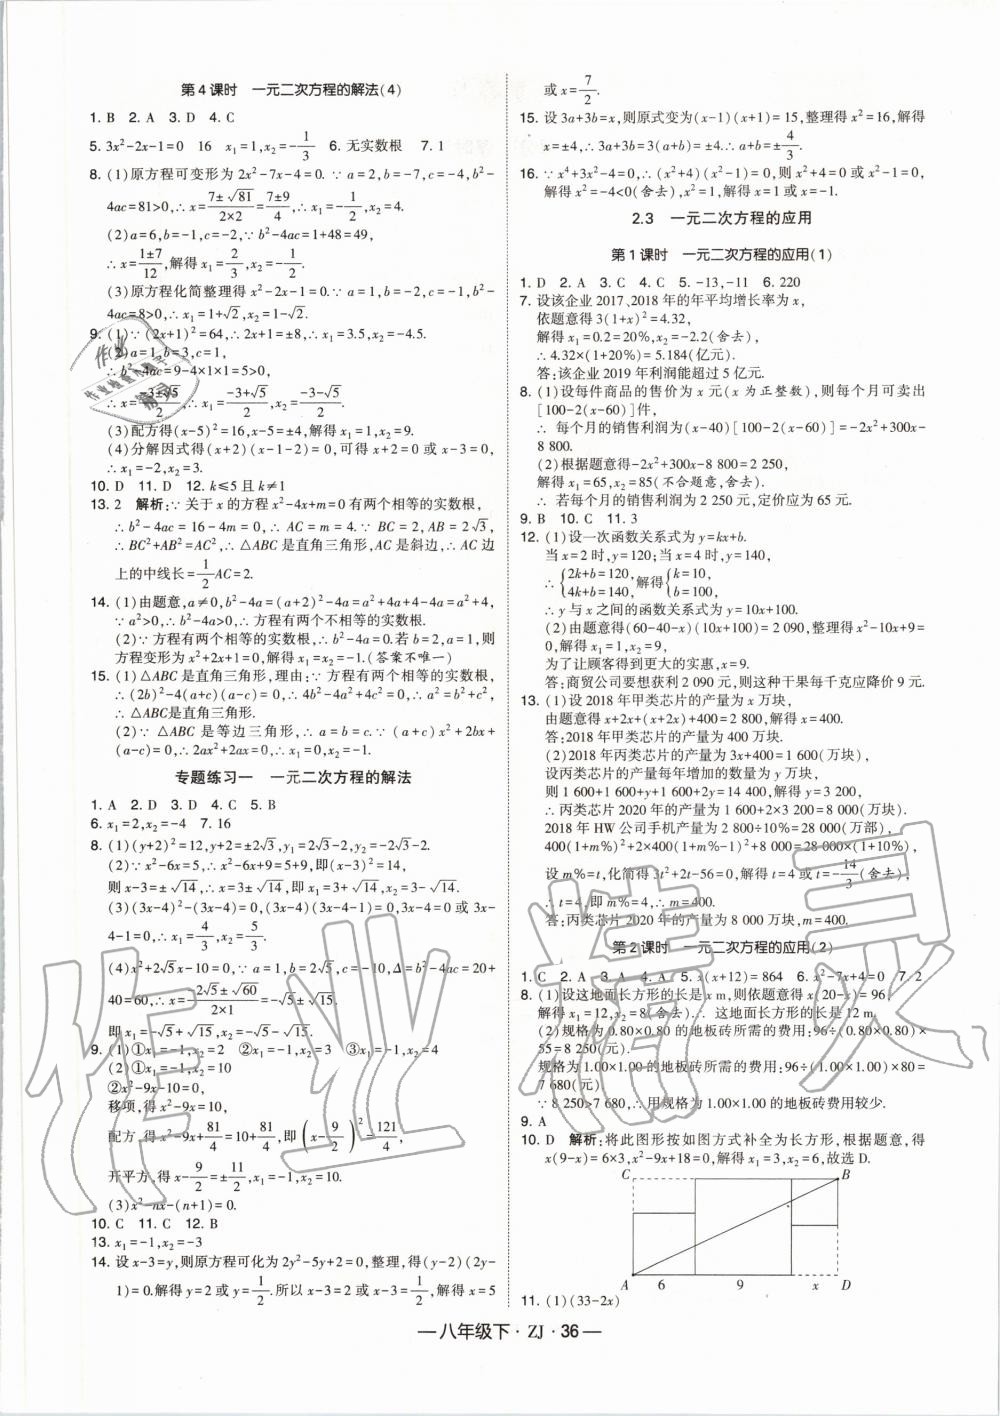 第4课时　一元二次方程的解法(4)
1. B　2. A　3. D　4. C
5. 3x²-2x-1=0　16　x₁=1,x₂=-1/3　6. 无实数根　7. 1
8. (1)原方程可变形为2x²-7x-4=0.∵a=2,b=-7,c=-4,b²-
4ac=81>0,∴x=(7±√81)/(2×2)=(7±9)/4,∴x₁=-1/2,x₂=4.
(2)a=6,b=-1,c=-2,∵b²-4ac=1+48=49,
∴x=(1±7)/12,解得x₁=2/3,x₂=-1/2.
(3)原方程化简整理得x²-2x-1=0.∵a=1,b=-2,c=-1,b²-
4ac=8>0,∴x₁=1+√2,x₂=1-√2.
9. (1)∵(2x+1)²=64,∴2x+1=±8,∴x₁=3.5,x₂=-4.5.
(2)a=1,b=3,c=1,
∴b²-4ac=9-4×1×1=5>0,
∴x=(-3±√5)/2,∴x₁=(-3+√5)/2,x₂=(-3-√5)/2.
(3)配方得(x-5)²=16,x-5=±4,解得x₁=1,x₂=9.
(4)分解因式得(x+2)(x-1-2)=0,可得x+2=0或x-3=0,
∴x₁=-2,x₂=3.
10. D　11. D　12. k≤5且k≠1
13. 2　解析:∵关于x的方程x²-4x+m=0有两个相等的实数根,
∴b²-4ac=16-4m=0,∴AC=m=4.∵BC=2,AB=2√3,
∴BC²+AB²=AC²,∴△ABC是直角三角形,AC是斜边,∴AC边
上的中线长=1/2AC=2.
14. (1)由题意,a≠0,b²-4a=(a+2)²-4a=a²+4a+4-4a=a²+4,
∵a²>0,∴b²-4a>0,∴方程有两个不相等的实数根.
(2)∵方程有两个相等的实数根,∴b²-4a=0.若b=2,a=1,则
方程变形为x²+2x+1=0,解得x₁=x₂=-1.(答案不唯一)
15. (1)△ABC是直角三角形,理由:∵方程有两个相等的实数根,
∴(2b)²-4(a+c)(a-c)=0,∴4b²-4a²+4c²=0,∴a²=b²+c²,
∴△ABC是直角三角形.
(2)∵△ABC是等边三角形,∴a=b=c.∵(a+c)x²+2bx+
(a-c)=0,∴2ax²+2ax=0,∴x₁=0,x₂=-1.
专题练习一　一元二次方程的解法
1. A　2. D　3. D　4. C　5. B
6. x₁=2,x₂=-4　7. 16
8. (1)(y+2)²=12,y+2=±2√3,y₁=2√3-2,y₂=-2√3-2.
(2)∵x²-6x=5,∴x²-6x+9=5+9,即(x-3)²=14,
则x-3=±√14,∴x=3±√14,即x₁=3+√14,x₂=3-√14.
(3)(3x-4)²-(3x-4)=0,(3x-4)(3x-4-1)=0,3x-4=0或3x-
4-1=0,∴x₁=4/3,x₂=5/3.
(4)x²+2√5x-10=0,∵a=1,b=2√5,c=-10,Δ=b²-4ac=20+
40=60,∴x=(-2√5±√60)/(2×1),
即x₁=-√5+√15,x₂=-√5-√15.
9. (1)①x₁=-1,x₂=2　②x₁=-1,x₂=3　③x₁=-1,x₂=4
(2)①x₁=-1,x₂=10
②x²-9x-10=0,
移项,得x²-9x=10,
配方,得x²-9x+81/4=10+81/4,即(x-9/2)²=121/4,
开平方,得x-9/2=±11/2,x₁=-1,x₂=10.
(3)x²-nx-(n+1)=0.
10. C　11. C　12. B
13. x₁=-1,x₂=-3
14. 设x-3=y,则原方程可化为2y²-5y+2=0,整理,得(y-2)(2y-
1)=0.解得y=2或y=1/2.所以x-3=2或x-3=1/2,解得x=5
或x=7/2.
15. 设3a+3b=x,则原式变为(x-1)(x+1)=15,整理得x²=16,解得
x=±4,∴3a+3b=3(a+b)=±4.∴a+b=±4/3.
16. ∵x⁴+3x²-4=0,∴(x²+4)(x²-1)=0,则x²+4=0或x²-1=0,
解得x²=-4<0(舍去),x²=1,解得x=1或x=-1.
2.3　一元二次方程的应用
第1课时　一元二次方程的应用(1)
1. D　2. A　3. C　4. C　5. -13,-11　6. 220
7. 设该企业2017、2018年的年平均增长率为x,
依题意得3(1+x)²=4.32,
解得x₁=0.2=20%,x₂=-2.2(舍去),
∴4.32×(1+20%)=5.184(亿元).
答:该企业2019年利润能超过5亿元.
8. (1)设每件商品的售价为x元(x为正整数),则每个月可卖出
[100-2(x-60)]件,
∴每个月的销售利润为(x-40)[100-2(x-60)]=-2x²+300x-
8 800.
(2)根据题意得-2x²+300x-8 800=2 250,
解得x₁=65,x₂=85(不合题意,舍去).
∴若每个月的销售利润为2 250元,定价应为65.
9. B　10. C　11. 3
12. (1)设一次函数关系式为y=kx+b.
当x=2时,y=120;当x=4时,y=140,
∴{2k+b=120,4k+b=140,解得{k=10,b=100,
∴y与x之间的函数关系式为y=10x+100.
(2)由题意得(60-40-x)(10x+100)=2 090,整理得x²-10x+9=
0,解得x₁=1,x₂=9,
为了让顾客得到更大的实惠,x=9.
答:商贸公司要想获利2 090元,则这种干果每千克应降价9元.
13. (1)设2018年甲类芯片的产量为x万块,
由题意得x+2x+(x+2x)+400=2 800,解得x=400.
答:2018年甲类芯片的产量为400万块.
(2)2018年丙类芯片的产量为3x+400=1 600(万块),
设丙类芯片的产量每年增加的数量为y万块,
则1 600+1 600+y+1 600+2y=14 400,解得y=3 200,
∴丙类芯片2020年的产量为1 600+2×3 200=8 000(万块).
2018年HW公司手机产量为2 800÷10%=28 000(万部),
400(1+m%)²+2×400(1+m%-1)²+8 000=28 000×(1+10%),
设m%=t,化简得3t²+2t-56=0,解得t=4或t=-14/3(舍去),
∴t=4,即m%=4,∴m=400.
答:丙类芯片2020年的产量为8 000万块,m=400.
第2课时　一元二次方程的应用(2)
1. C　2. A　3. A　4. A　5. x(x+12)=864　6. x²-7x+4=0　7. 2
8. (1)设这地面长方形的长是x m,则依题意得x(20-x)=96,
解得x₁=12,x₂=8(舍去).∴这地面长方形的长是12 m.
(2)规格为0.80×0.80的地板砖所需的费用:96÷(0.80×0.80)×
55=8 250(元).
规格为1.00×1.00的地板砖所需的费用:96÷(1.00×1.00)×80=
7 680(元).
∵8 250>7 680,∴用规格为1.00×1.00的地板砖费用较少.
9. A
10. D　解析:将此图形按如图方式补全为长方形,根据题意,得
x(9-x)=6×3,x²-9x+18=0,解得x₁=3,x₂=6,故选D.
C　B
A　6　9　x　D
11. (1)(33-2x)
—八年级下·ZJ·36—
作业精灵